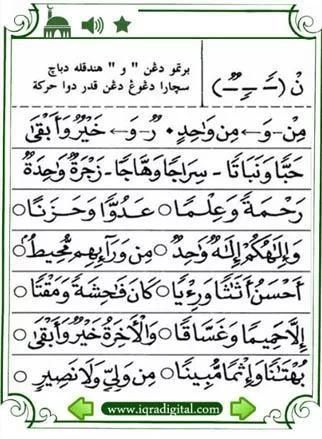 نْ (ــًــٍــٌــ) برتمو دڠن " و " هندقله دباچ
سچارا دڠوڠ دڠن قدر دوا حركة
مِنْ - وَ ← مِن وَاحِدٍ • رٌ - وَ ← خَيْرٌ وَأَبْقَىٰ
حَبًّا وَنَبَاتًا - سِرَاجًا وَهَّاجًا - زَجْرَةٌ وَاحِدَةٌ
رَحْمَةً وَعِلْمًا ○ عَدُوًّا وَحَزَنًا ○
وَإِلَٰهُكُمْ إِلَٰهٌ وَاحِدٌ ○ مِن وَرَآءِهِم مُّحِيطٌ ○
أَحْسَنُ أَثَٰثًا وَرِءْيًا ○ كَانَ فَٰحِشَةً وَمَقْتًا ○
إِلَّا حَمِيمًا وَغَسَّاقًا ○ وَالْأَخِرَةُ خَيْرٌ وَأَبْقَىٰ ○
بُهْتَٰنًا وَإِثْمًا مُّبِينًا ○ مِن وَلِيٍّ وَلَا نَصِيرٍ ○
www.iqradigital.com